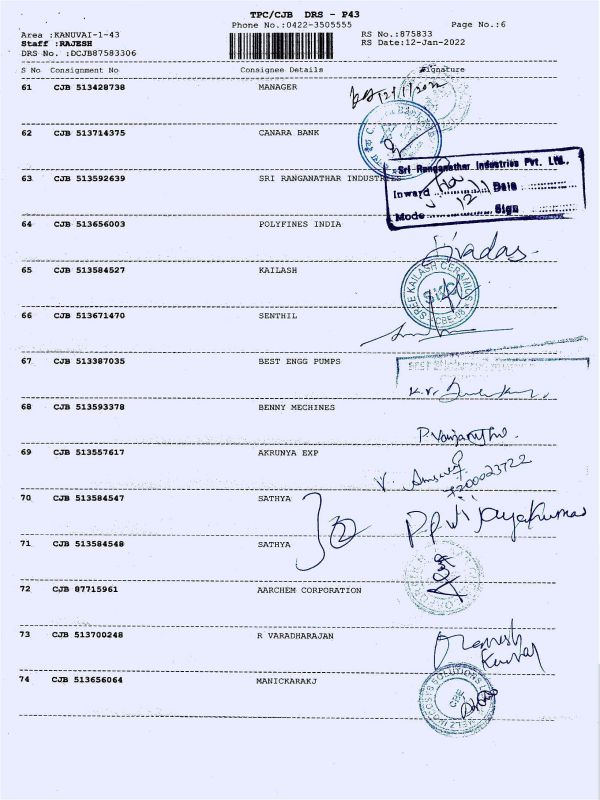 TPC/CJB DRS - P43
Phone No.:0422-3505555 Page No.:6
Area :KANUVAI-1-43 RS No.:875833
Staff :RAJESH RS Date:12-Jan-2022
DRS No. :DCJB87583306
S No Consignment No Consignee Details Signature
61 CJB 513428738 MANAGER 12/1/2022
62 CJB 513714375 CANARA BANK
63 CJB 513592639 SRI RANGANATHAR INDUSTRIES
Sri Ranganathar Industries Pvt. Ltd.,
Inward Date
Mode Sign
64 CJB 513656003 POLYFINES INDIA
Sivadas
65 CJB 513584527 KAILASH
SREE KAILASH CERAMICS
66 CJB 513671470 SENTHIL
67 CJB 513387035 BEST ENGG PUMPS
68 CJB 513593378 BENNY MECHINES
69 CJB 513557617 AKRUNYA EXP
7200023722
70 CJB 513584547 SATHYA
2
P.P. Vijayakumar
71 CJB 513584548 SATHYA
72 CJB 87715961 AARCHEM CORPORATION
73 CJB 513700248 R VARADHARAJAN
Ramesh
Kumar
74 CJB 513656064 MANICKARAKJ